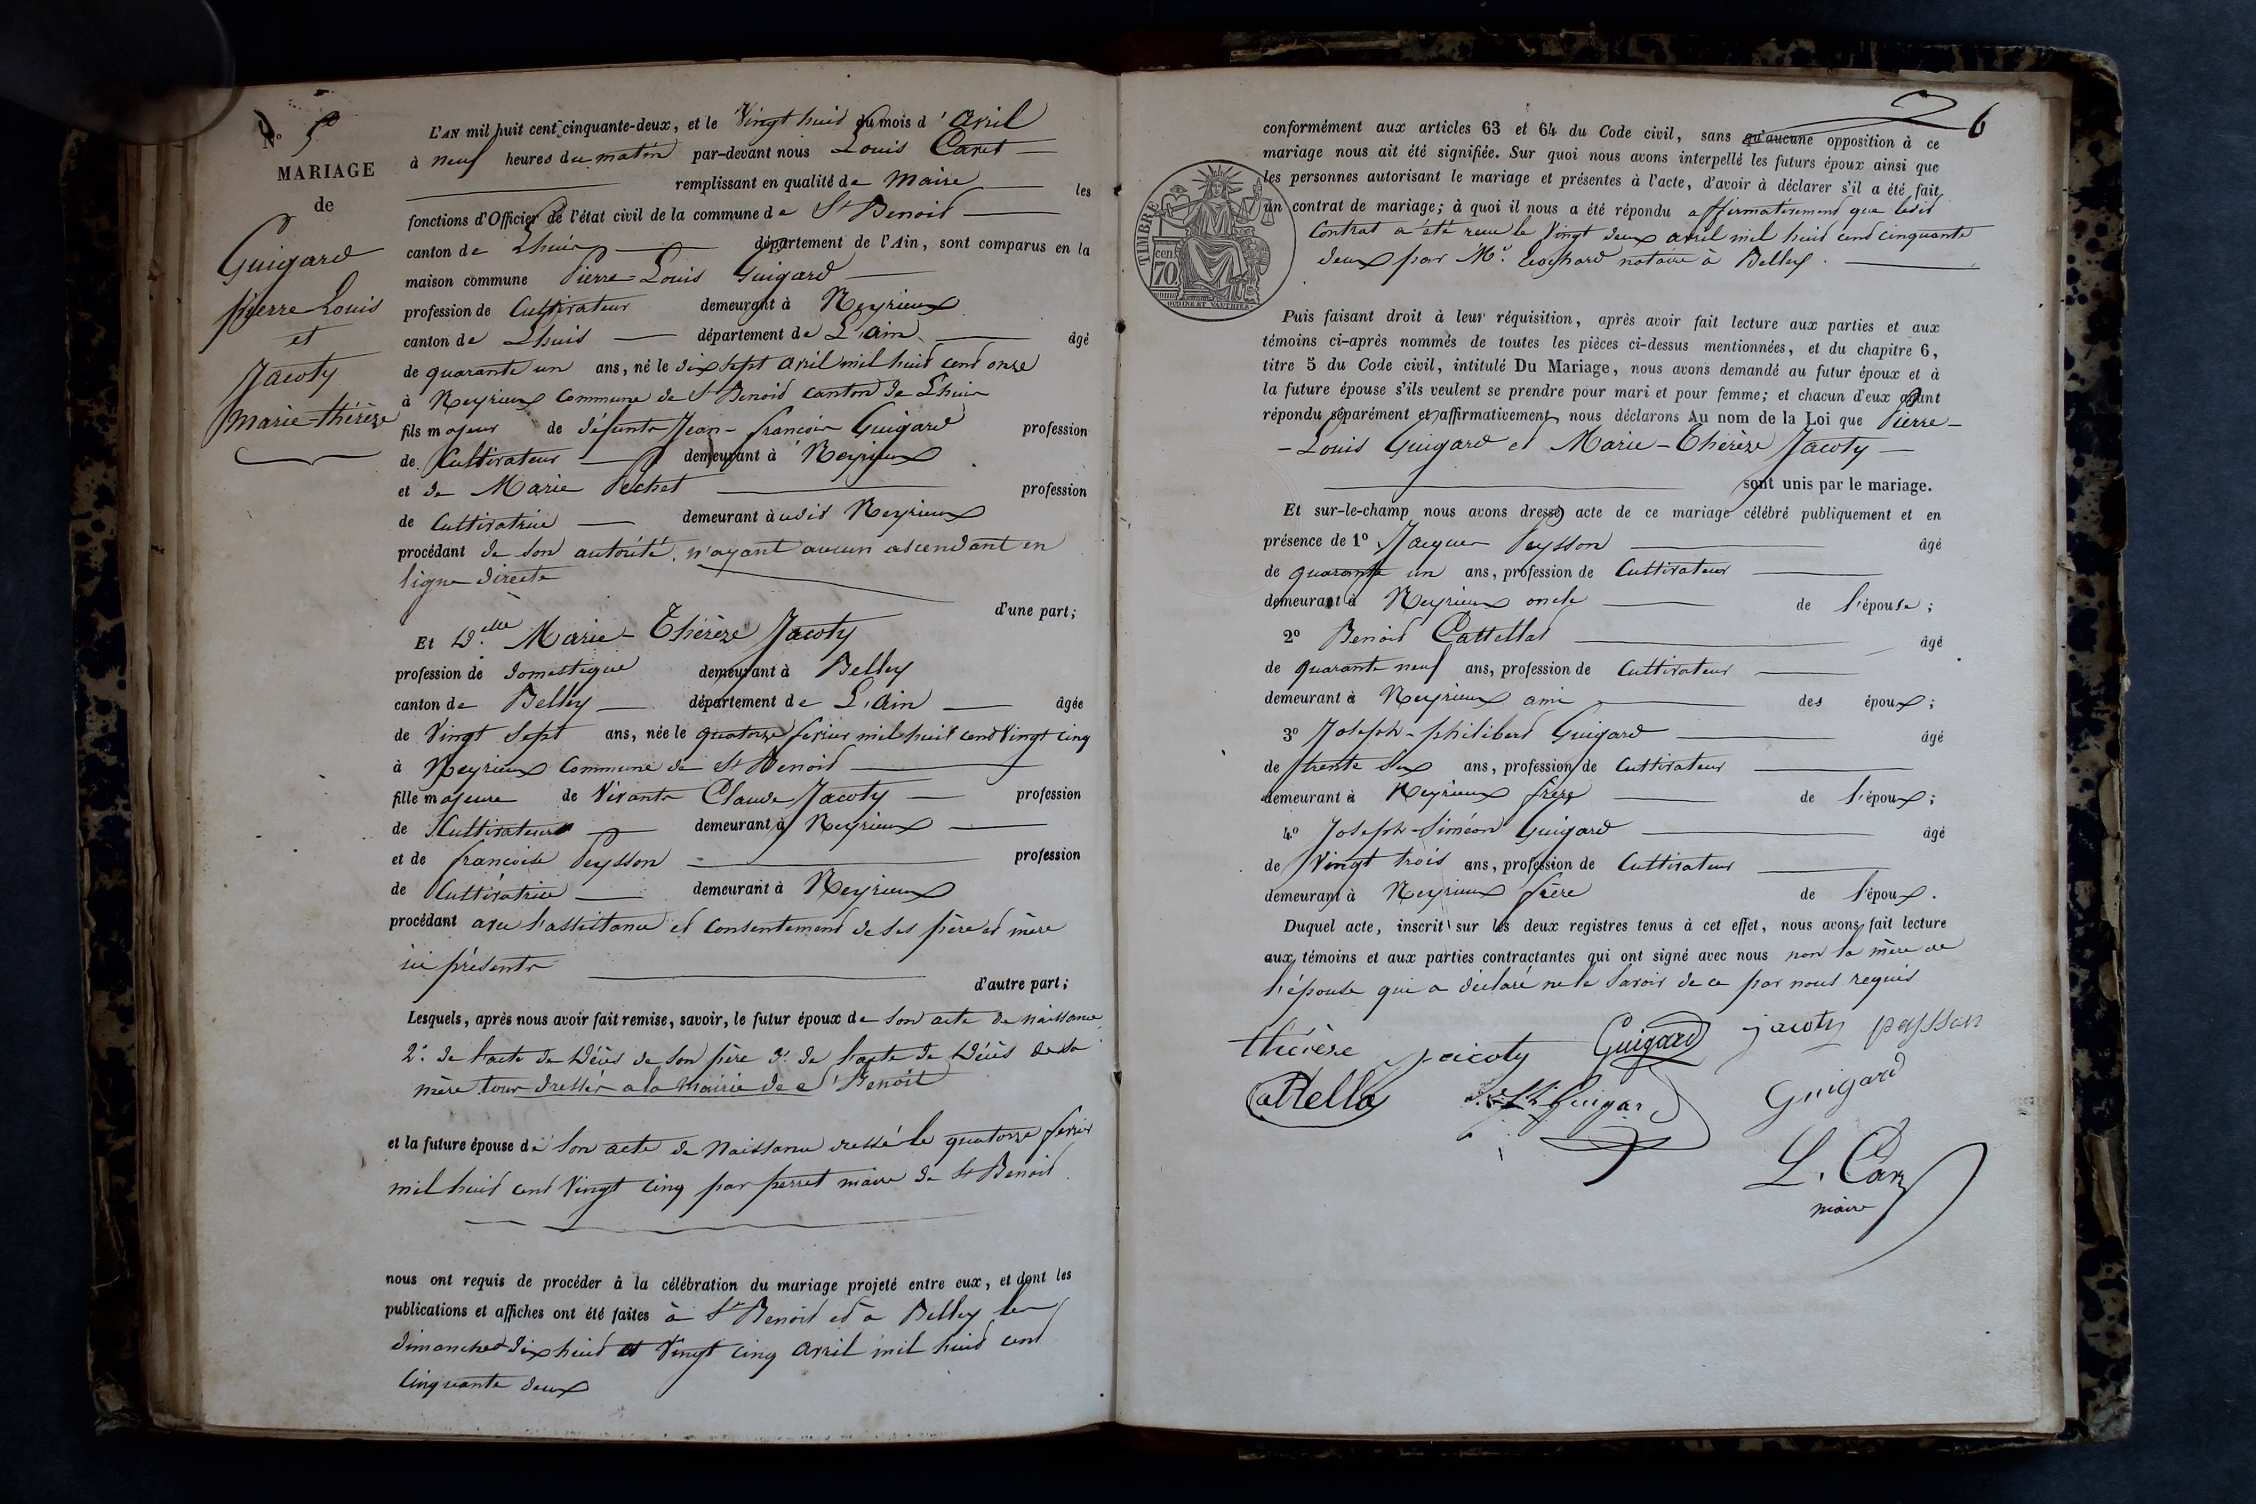 N° 5
MARIAGE
de
Guigard
pierre Louis
et
Jacoty
marie thérèze
L'AN mil huit cent cinquante-deux, et le Vingt huit du mois d'avril
à neuf heures du matin par-devant nous Louis Caret
remplissant en qualité de Maire les
fonctions d'Officier de l'état civil de la commune de St Benoit
canton de Lhuis département de l'Ain, sont comparus en la
maison commune Pierre-Louis Guigard
profession de Cultivateur demeurant à Neyrieux
canton de Lhuis département de L'ain âgé
de quarante un ans, né le dix sept avril mil huit cent onze
à Neyrieux Commune de St Benoit canton de Lhuis
fils majeur de défunts Jean-françois Guigard profession
de Cultivateur demeurant à Neyrieux
et de Marie Pechet profession
de Cultivatrice demeurant audit Neyrieux
procédant de son autorité, n'ayant aucun ascendant en
ligne directe
d'une part;
Et D.elle Marie-Thérèze Jacoty
profession de domestique demeurant à Belley
canton de Belley département de L'ain âgée
de Vingt Sept ans, née le quatorze février mil huit cent Vingt cinq
à Neyrieux Commune de St Benoit
fille majeure de Vivants Claude Jacoty profession
de Cultivateur demeurant à Neyrieux
et de francoise Peysson profession
de Cultivatrice demeurant à Neyrieux
procédant avec l'assistance et consentement de ses père et mère
ici présents
d'autre part;
Lesquels, après nous avoir fait remise, savoir, le futur époux de son acte de naissance
2° de l'acte de Décès de son père 3° de l'acte de Décès de sa
mère tous dressés a la Mairie de St Benoit
et la future épouse de son acte de Naissance dressé le quatorze févrir
mil huit cent Vingt cinq par perret maire de St Benoit
nous ont requis de procéder à la célébration du mariage projeté entre eux, et dont les
publications et affiches ont été faites à St Benoit et à Belley les
dimanches dix huit et Vingt cinq avril mil huit cent
Cinquante deux
6
conformément aux articles 63 et 64 du Code civil, sans qu'aucune opposition à ce
mariage nous ait été signifiée. Sur quoi nous avons interpellé les futurs époux ainsi que
les personnes autorisant le mariage et présentes à l'acte, d'avoir à déclarer s'il a été fait
un contrat de mariage; à quoi il nous a été répondu affirmativement que ledit
Contrat a été reçu le Vingt deux avril mil huit cent cinquante
deux par Me notaire à Belley.
TIMBRE
70 cen
OUDINE ET VAUTHIER
Puis faisant droit à leur réquisition, après avoir fait lecture aux parties et aux
témoins ci-après nommés de toutes les pièces ci-dessus mentionnées, et du chapitre 6,
titre 5 du Code civil, intitulé Du Mariage, nous avons demandé au futur époux et à
la future épouse s'ils veulent se prendre pour mari et pour femme; et chacun d'eux ayant
répondu séparément et affirmativement, nous déclarons Au nom de la Loi que Pierre-
-Louis Guigard et Marie-Thérèze Jacoty
sont unis par le mariage.
Et sur-le-champ nous avons dressé acte de ce mariage célébré publiquement et en
présence de 1° Jacques Peysson âgé
de quarante un ans, profession de Cultivateur
demeurant à Neyrieux oncle de l'épouse;
2° Benoit Cattellat âgé
de quarante neuf ans, profession de Cultivateur
demeurant à Neyrieux ami des époux;
3° Joseph-philibert Guigard âgé
de trente deux ans, profession de Cultivateur
demeurant à Neyrieux frère de l'époux;
4° Joseph-Siméon Guigard âgé
de Vingt trois ans, profession de Cultivateur
demeurant à Neyrieux frère de l'époux.
Duquel acte, inscrit sur les deux registres tenus à cet effet, nous avons fait lecture
aux témoins et aux parties contractantes qui ont signé avec nous non la mère de
l'épouse qui a déclaré ne le Savoir de ce par nous requis
thérèse jacoty Guigard jacoty peysson
Guigar Guigard
L. Car
maire